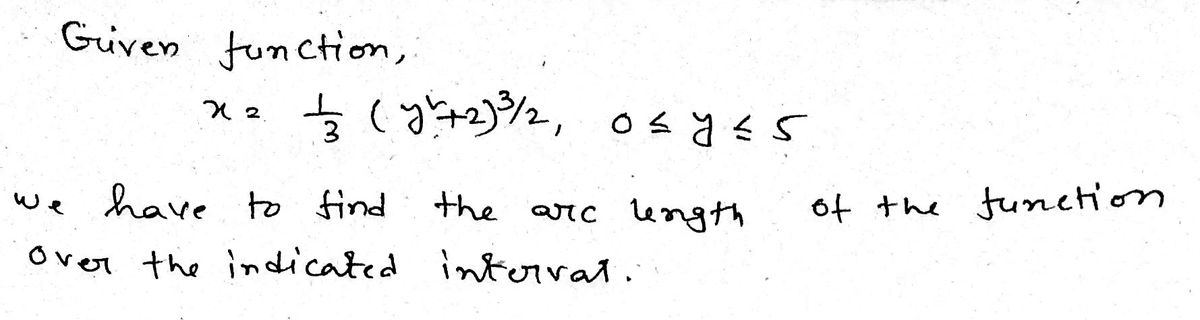 Given function,
x = 1/3 (y²+2)^3/2, 0 ≤ y ≤ 5
we have to find the arc length of the function
over the indicated interval.